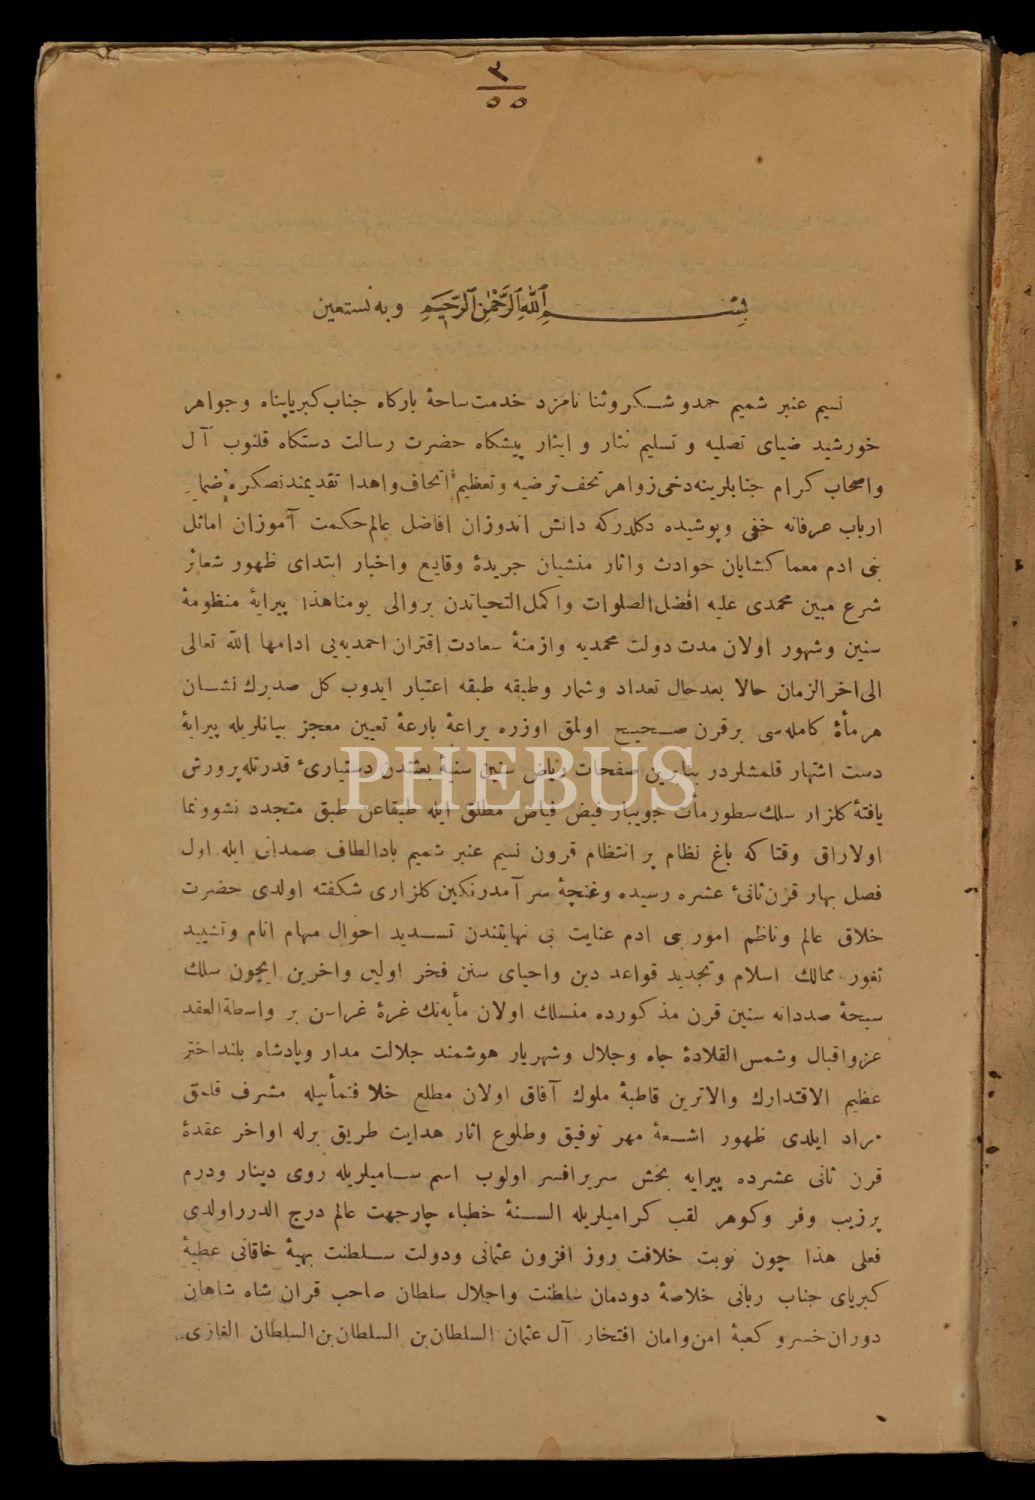 ٢
٥٥
بسم الله الرحمن الرحيم وبه نستعين
نسيم عنبر شميم حمد و شكر و ثنا نامزد خدمت ساحهٔ باركاه جناب كبرياپناه و جواهر
خورشيد ضياى تصليه و تسليم نثار و ايثار پيشكاه حضرت رسالت دستكاه قلنوب آل
واصحاب كرام جنابلرينه دخى زواهر تحف ترضيه و تعظيم اتحاف واهدا تقديمندنصكره ضماير
ارباب عرفانه خفى وپوشيده دكلدركه دانش اندوزان افاضل عالم حكمت آموزان اماثل
بنى ادم معما كشايان حوادث واثار منشيان جريدهٔ وقايع واخبار ابتداى ظهور شعائر
شرع مبين محمدى عليه افضل الصلوات واكمل التحياتدن بروالى يومناهذا پيرايهٔ منظومهٔ
سنين وشهور اولان مدت دولت محمديه وازمنهٔ سعادت اقتران احمديه يى ادامها الله تعالى
الى اخر الزمان حالا بعدحال تعداد وشمار وطبقه طبقه اعتبار ايدوب كل صدرك نشان
هرمأهٔ كامله سى برقرن صحيح اولمق اوزره براعهٔ بارعهٔ تعيين معجز بيانلريله پيرايهٔ
دست اشتهار قلمشلردر بنابرين صفحات رياض سنين سنيهٔ بعثتدن دستيارئ قدرتله پرورش
يافتهٔ كلزار سلك سطور مأت جويبار فيض فياض مطلق ايله طبقاعن طبق متجدد نشوونما
اولاراق وقتا كه باغ نظام پر انتظام قرون نسيم عنبر شميم بادالطاف صمدانى ايله اول
فصل بهار قرن ثانئ عشره رسيده وغنچهٔ سر آمدرنكين كلزارى شكفته اولدى حضرت
خلاق عالم وناظم امور بنى ادم عنايت بى نهايتندن تسديد احوال مهام انام وتشييد
ثغور ممالك اسلام وتجديد قواعد دين واحياى سنن فخر اولين واخرين ايچون سلك
سبحهٔ صددانه سنين قرن مذكورده منسلك اولان مأيه نك غرهٔ غراسن بر واسطةالعقد
عزواقبال وشمس القلادهٔ جاه وجلال وشهريار هوشمند جلالت مدار وپادشاه بلنداختر
عظيم الاقتدارك والاترين قاطبهٔ ملوك آفاق اولان مطلع خلافتمأبيله مشرف قلمق
مراد ايلدى ظهور اشعهٔ مهر توفيق وطلوع اثار هدايت طريق برله اواخر عقدهٔ
قرن ثانى عشرده پيرايه بخش سريرافسر اولوب اسم ساميلريله روى دينار ودرم
پرزيب وفر وكوهر لقب كراميلريله السنهٔ خطباء چارجهت عالم درج الدرراولدى
فعلى هذا چون نوبت خلافت روز افزون عثمانى ودولت سلطنت بهيهٔ خاقانى عطيهٔ
كبرياى جناب ربانى خلاصهٔ دودمان سلطنت واجلال سلطان صاحب قران شاه شاهان
دوران خسرو كعبهٔ امن وامان افتخار آل عثمان السلطان بن السلطان بن السلطان الغازى
PHEBUS